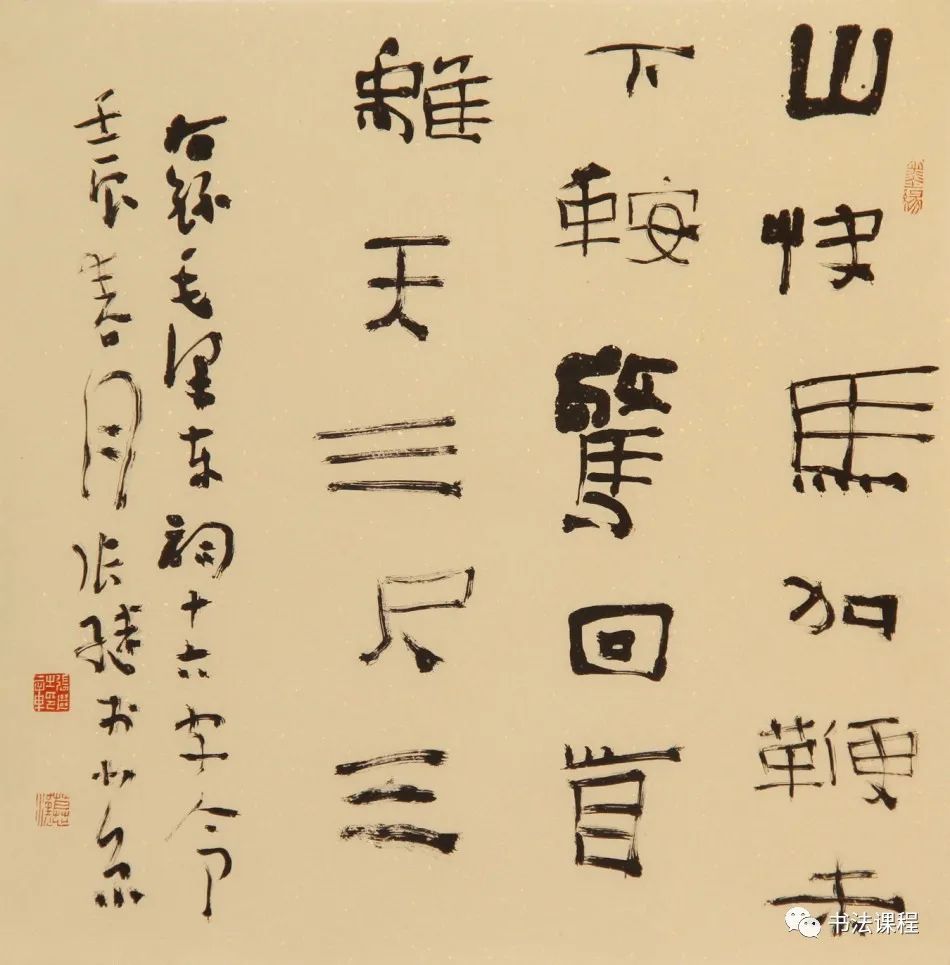 山快馬加鞭未
下鞍驚回首
離天三尺三
右録毛泽东詞十六字令
壬辰春月张继书
书法课程